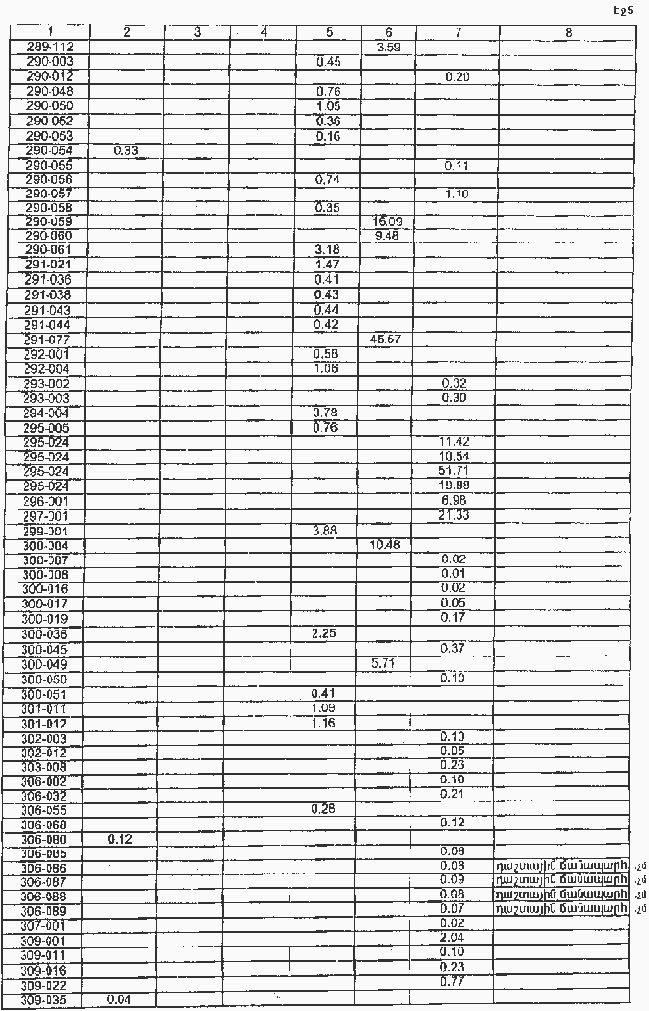 էջ5
1 2 3 4 5 6 7 8
289-112 3.59
290-003 0.45
290-012 0.20
290-048 0.76
290-050 1.05
290-052 0.36
290-053 0.16
290-054 0.33
290-055 0.11
290-056 0.74
290-057 1.10
290-058 0.35
290-059 16.09
290-060 9.48
290-061 3.18
291-021 1.47
291-036 0.41
291-038 0.43
291-043 0.44
291-044 0.42
291-077
292-001 0.58
292-004 1.06
293-002 0.02
293-003 0.30
294-004 0.78
295-005 0.76
295-024 11.42
295-024 10.54
295-024 51.71
295-024
296-001 6.98
297-001 21.33
299-001 3.88
300-004 10.48
300-007 0.02
300-008 0.01
300-016 0.02
300-017 0.05
300-019 0.17
300-038 2.25
300-045 0.37
300-049 5.71
300-050 0.10
300-051 0.41
301-011 1.09
301-012 1.16
302-003 0.10
302-012 0.05
303-008 0.23
306-002 0.10
306-032 0.21
306-055 0.28
306-068 0.12
306-080 0.12
306-085 0.08
306-086 0.08 դաշտային ճանապարհ
306-087 0.09 դաշտային ճանապարհ
306-088 0.08 դաշտային ճանապարհ
306-089 0.07 դաշտային ճանապարհ
307-001 0.02
309-001 2.04
309-011 0.10
309-016 0.23
309-022 0.77
309-035 0.04